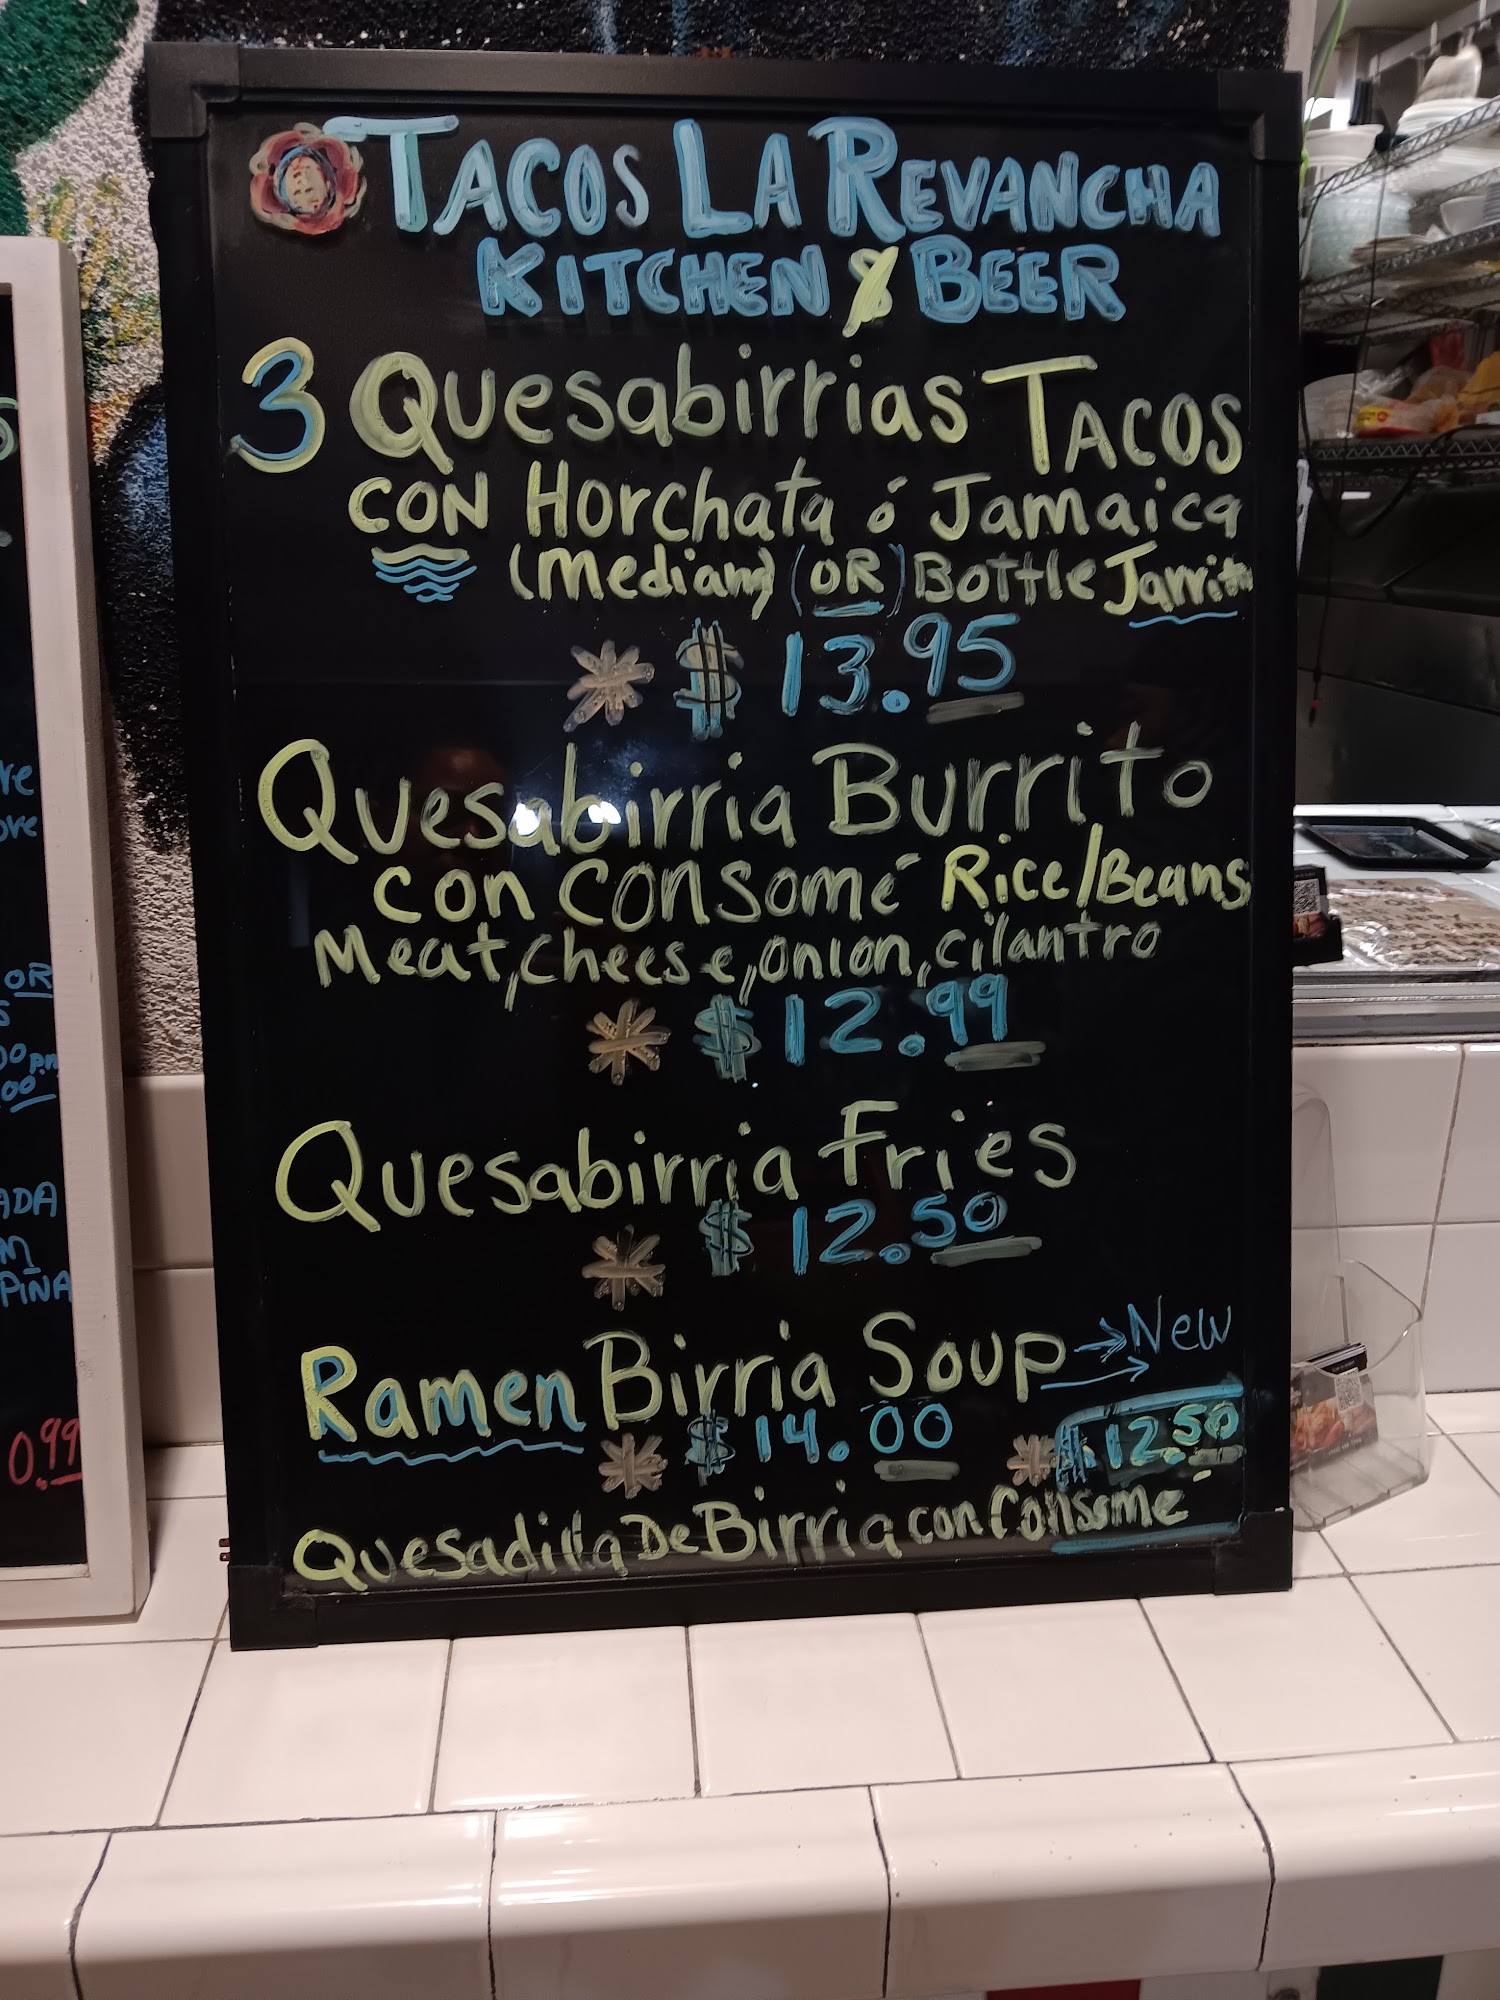 TACOS LA REVANCHA
KITCHEN & BEER
3 Quesabirrias TACOS
CON Horchata ó Jamaica
(Mediana) (OR) Bottle Jarrito
* $ 13.95
Quesabirria Burrito
con consomé Rice/Beans
Meat, cheese, onion, cilantro
* $ 12.99
Quesabirria Fries
* $ 12.50
Ramen Birria Soup → New
* $ 14.00
* $ 12.50
Quesadilla De Birria con Consomé
OR
00
ADA
PIÑA
0.99